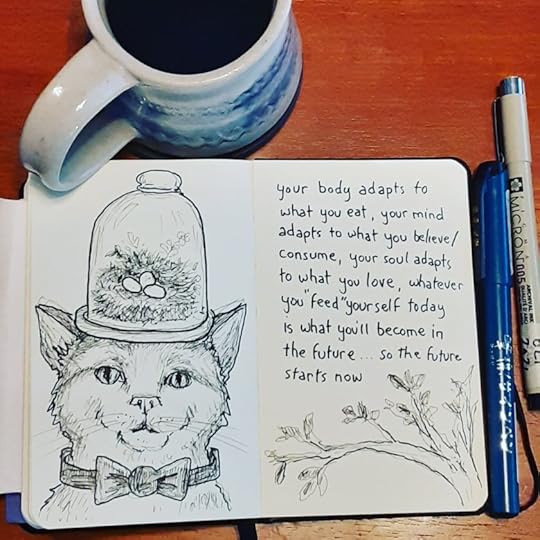 your body adapts to
what you eat, your mind
adapts to what you believe/
consume, your soul adapts
to what you love, whatever
you "feed" yourself today
is what you'll become in
the future... so the future
starts now
MICRON 005